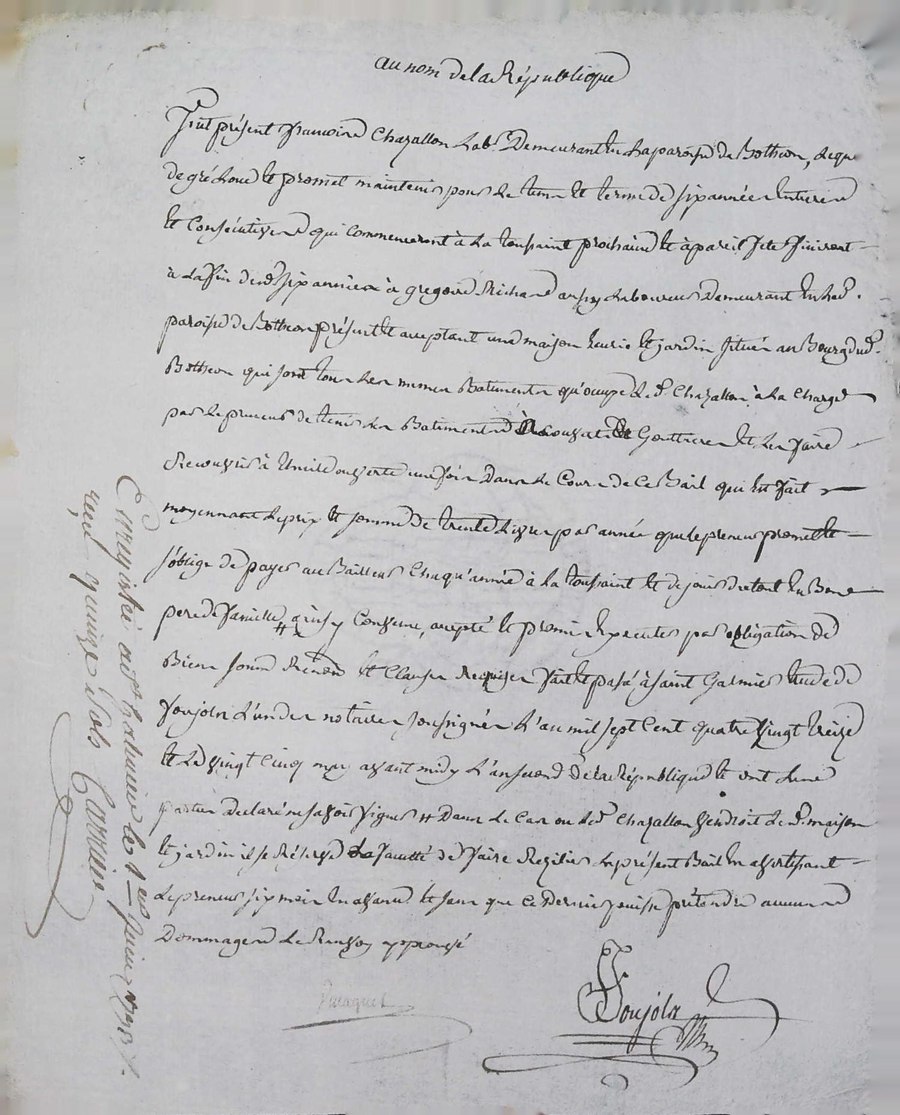 au nom de la République
fut présent francoise Chazallon lab.r Demeurant en la paroisse de Botheon, lequel
de gré Loue et promet maintenir pour le tems et terme de six années entieres
et Consécutives qui commenceront à la toussaint prochaine et à pareil fete finiront
à la fin desd. six années à gregoire Richard aussy Laboureur Demeurant en lad.
paroisse de Botheon présent et acceptant une maison Ecurie et jardin située au Bourg dud.
Botheon qui sont tous les memes Batiments qu'occupe led. Chazallon à la Charge
par le preneur de tenir les Batiments à Gouttieres et les faire
Recouvrir à thuile ouverte une fois dans le Cours de Ce Bail qui est fait
moyennant le prix et somme de trente livres par année que le preneur promet et
s'oblige de payer au Bailleur Chaqu'année à la toussaint et de jouir du tout en Bon
pere de famille, ainsy Convenu, accepté et promis Executer par obligation de
Biens soum. Renon. et Clauses Requises fait et passé à Saint Galmier Etude de
Poujola L'un des notaires soussignés L'an mil sept Cent quatre vingt treize
et le vingt Cinq may avant midy L'an second de la République et ont les
parties Declaré ne savoir signer # Dans le Cas ou led. Chazallon Vendroit led. maison
et jardin il se Réserve la faculté de faire Resilier le présent Bail en avertissant
le preneur six mois en avant et sans que ce dernier puisse prétendre aucuns
Dommages Le Renvoy approuvé
Poujola
Enregistré a St Galmier le 1er juin 1793
reçu quinze sols